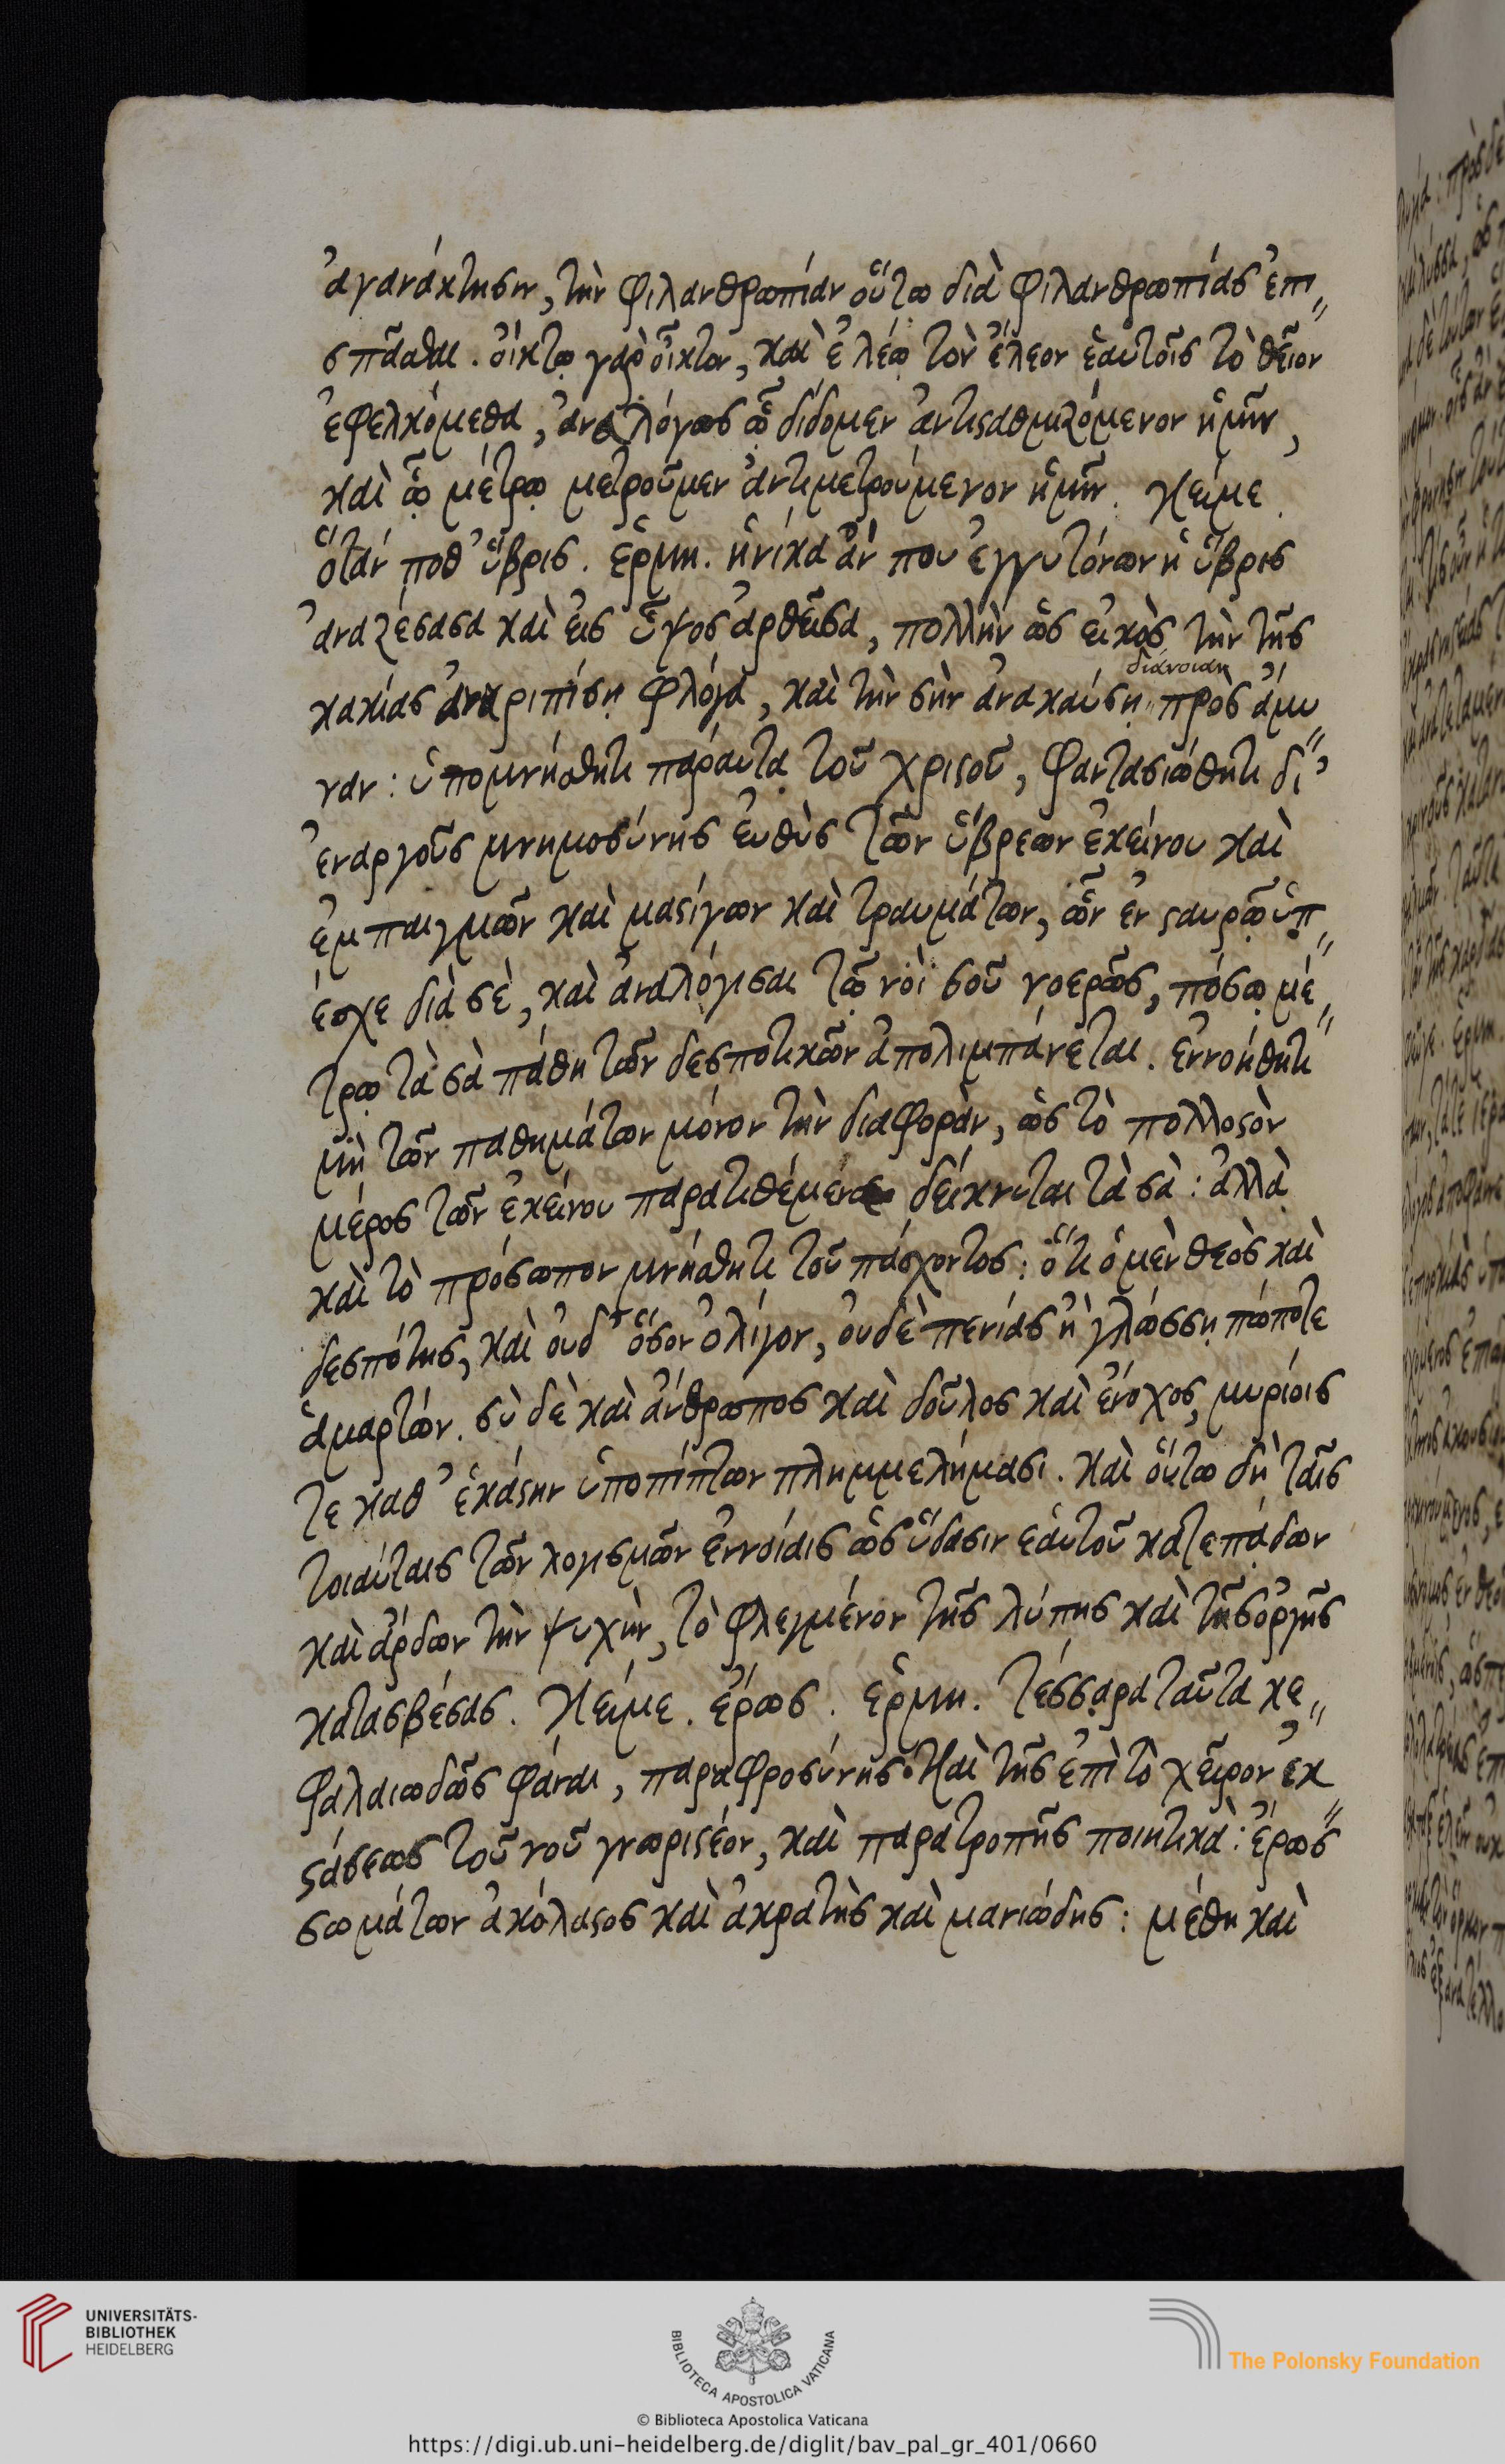 ἀγανάκτησιν, τὴν φιλανθρωπίαν οὕτω διὰ φιλανθρωπίας ἐπι„
σπᾶσθαι. οἴκτῳ γὰρ οἶκτον, καὶ ἐλέῳ τὸν ἔλεον ἑαυτοῖς τὸ θεῖον
ἐφελκόμεθα, ἀναλόγως ᾧ δίδομεν ἀντισταθμιζόμενον ἡμῖν,
καὶ ᾧ μέτρῳ μετροῦμεν ἀντιμετρούμενον ἡμῖν. Κείμε.
ὅταν ποθ' ὕβρις. ἑρμη. ἡνίκα ἄν που ἐγγυτόνων ἡ ὕβρις
ἀναζέσασα καὶ εἰς ὕψος ἀρθεῖσα, πολλὴν ὡς εἰκὸς τὴν τῆς
διάνοιαν
κακίας ἀναρριπίσῃ φλόγα, καὶ τὴν σὴν ἀνακαύσῃ πρὸς ἄμυ„
ναν: ὑπομνήσθητι πάραυτα τοῦ χριστοῦ, φαντασιώθητι δι'
ἐναργοῦς μνημοσύνης εὐθὺς τῶν ὕβρεων ἐκείνου καὶ
ἐμπαιγμῶν καὶ μαστίγων καὶ τραυμάτων, ὧν ἐν σταυρῷ ὑπ„
έσχε διὰ σὲ, καὶ ἀναλόγισαι τῷ νοΐ σοῦ νοερῶς, πόσῳ μέ„
τρῳ τὰ σὰ πάθη τῶν δεσποτικῶν ἀπολιμπάνεται. ἐννοήθητι
μὴ τῶν παθημάτων μόνον τὴν διαφορὰν, ὡς τὸ πολλοστὸν
μέρος τῶν ἐκείνου παρατιθέμενα δείκνυται τὰ σὰ: ἀλλὰ
καὶ τὸ πρόσωπον μνήσθητι τοῦ πάσχοντος: ὅτι ὁ μὲν θεὸς καὶ
δεσπότης, καὶ οὐδ' ὅσον ὀλίγον, οὐδὲ πενίας ἢ γλώσσῃ πώποτε
ἁμαρτών. σὺ δὲ καὶ ἄνθρωπος καὶ δοῦλος καὶ ἔνοχος, μυρίοις
τε καθ' ἑκάστην ὑποπίπτων πλημμελήμασι. καὶ οὕτω δὴ ταῖς
τοιαύταις τῶν λογισμῶν ἐννοίαις ὡς ὕδασιν ἑαυτοῦ κατεπᾴδων
καὶ ἄρδων τὴν ψυχὴν, τὸ φλεγμένον τῆς λύπης καὶ τῆς ὀργῆς
κατασβέσας. Κείμε. ἔρως. ἑρμη. τέσσαρα ταῦτα κε„
φαλαιωδῶς φάναι, παραφροσύνης καὶ τῆς ἐπὶ τὸ χεῖρον ἐκ„
στάσεως τοῦ νοῦ γνωριστέον, καὶ παρατροπῆς ποιητικὰ: ἔρως
σωμάτων ἀκόλαστος καὶ ἀκρατὴς καὶ μανιώδης: μέθη καὶ
UNIVERSITÄTS-
BIBLIOTHEK
HEIDELBERG
BIBLIOTECA APOSTOLICA VATICANA
The Polonsky Foundation
© Biblioteca Apostolica Vaticana
https://digi.ub.uni-heidelberg.de/diglit/bav_pal_gr_401/0660